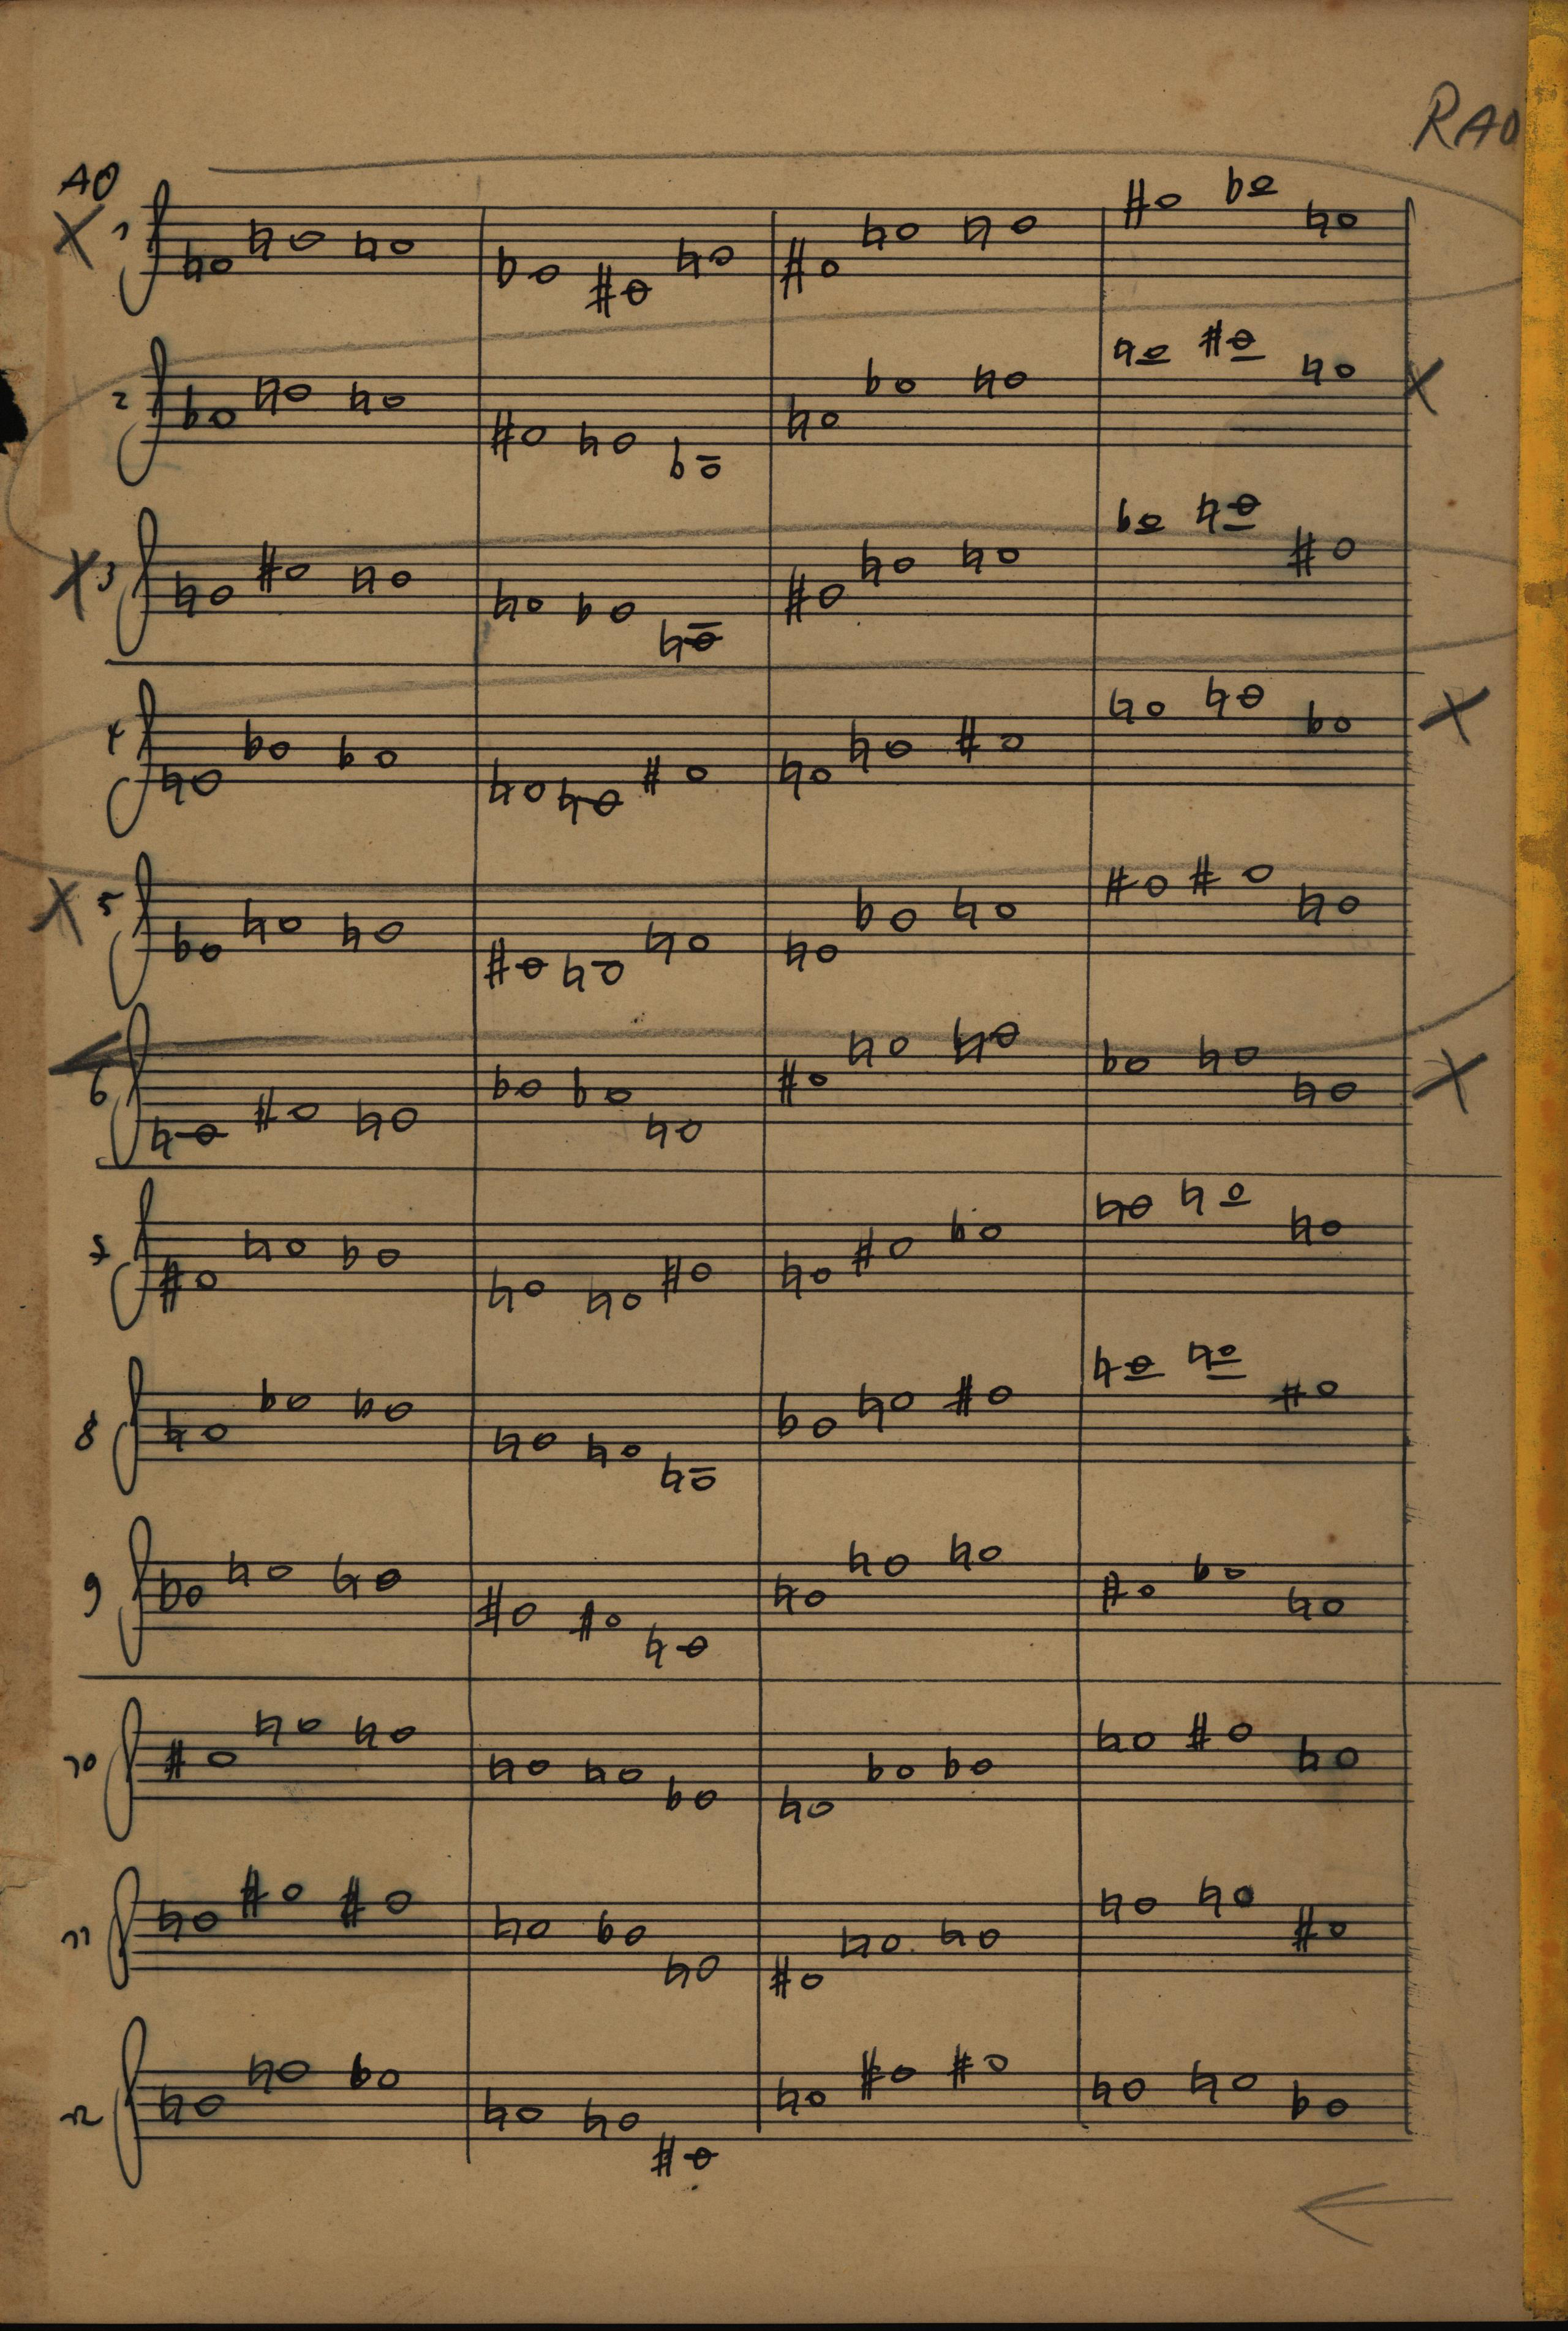 RAO
AO
X 1
2 X
X 3
4 X
X 5
6 X
7
8
9
10
11
12